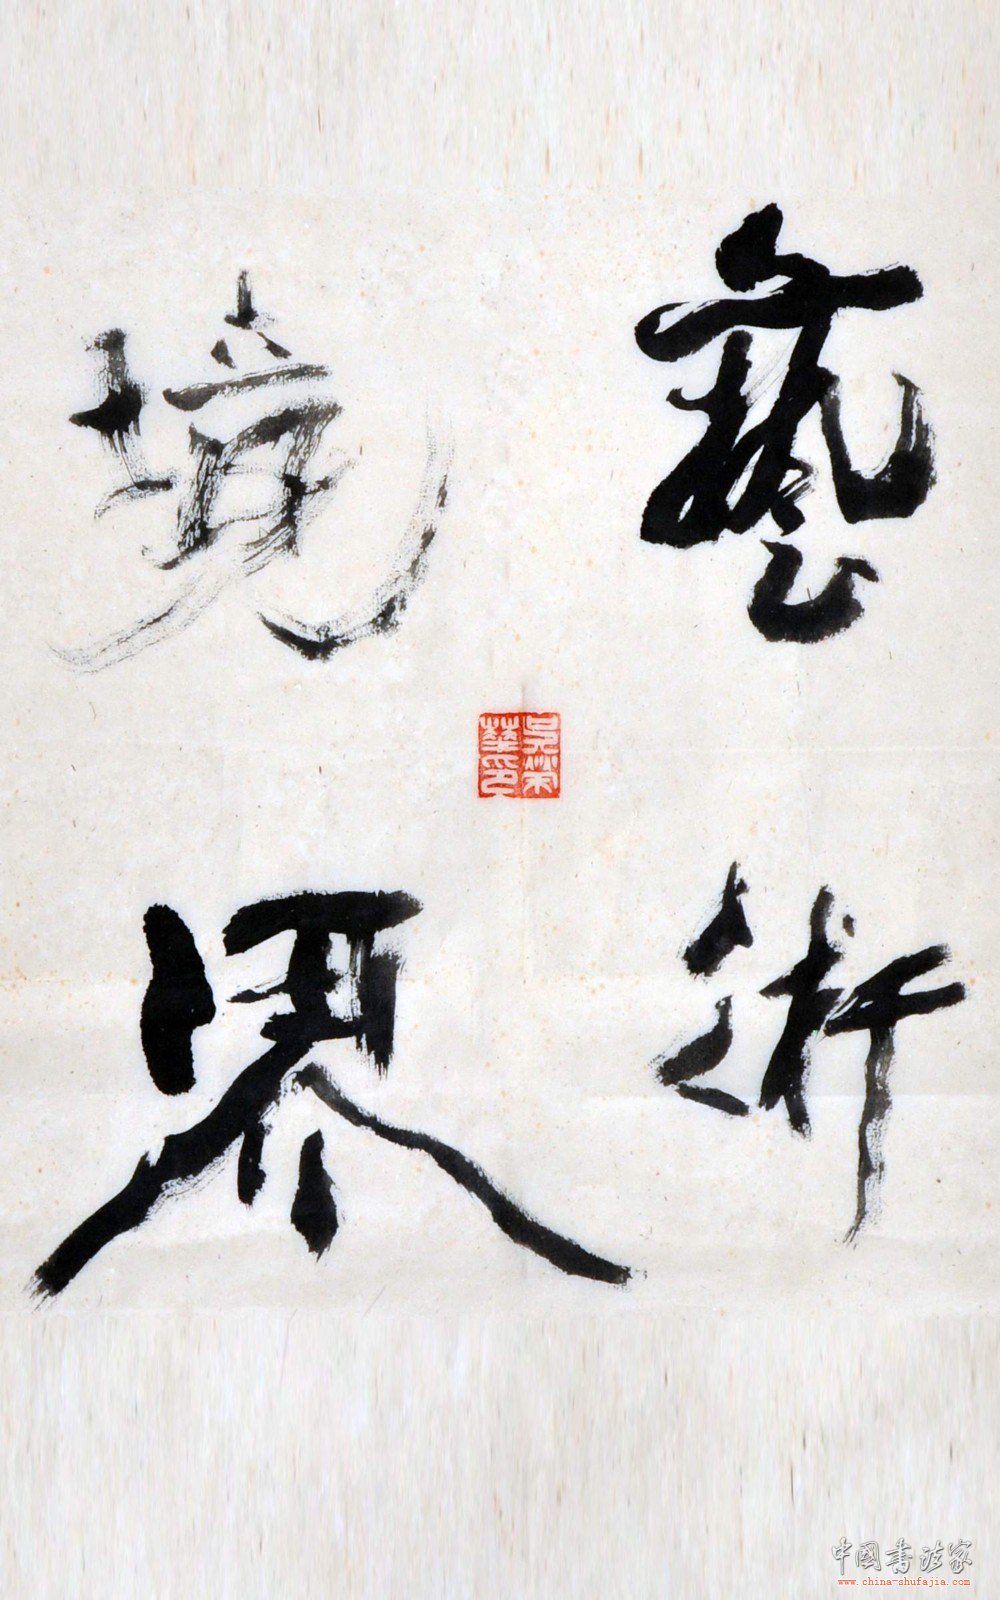 藝術
境界
中國書法家
www.china-shufajia.com